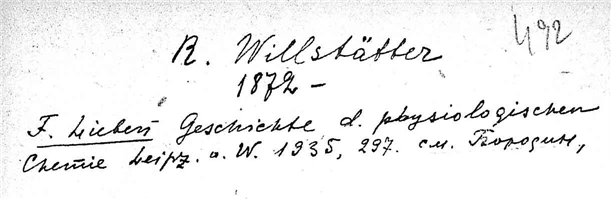 492
R. Willstätter
1872 –
F. Lieben Geschichte d. physiologischen
Chemie Leipz. u. W. 1935, 297. см. Бородин,